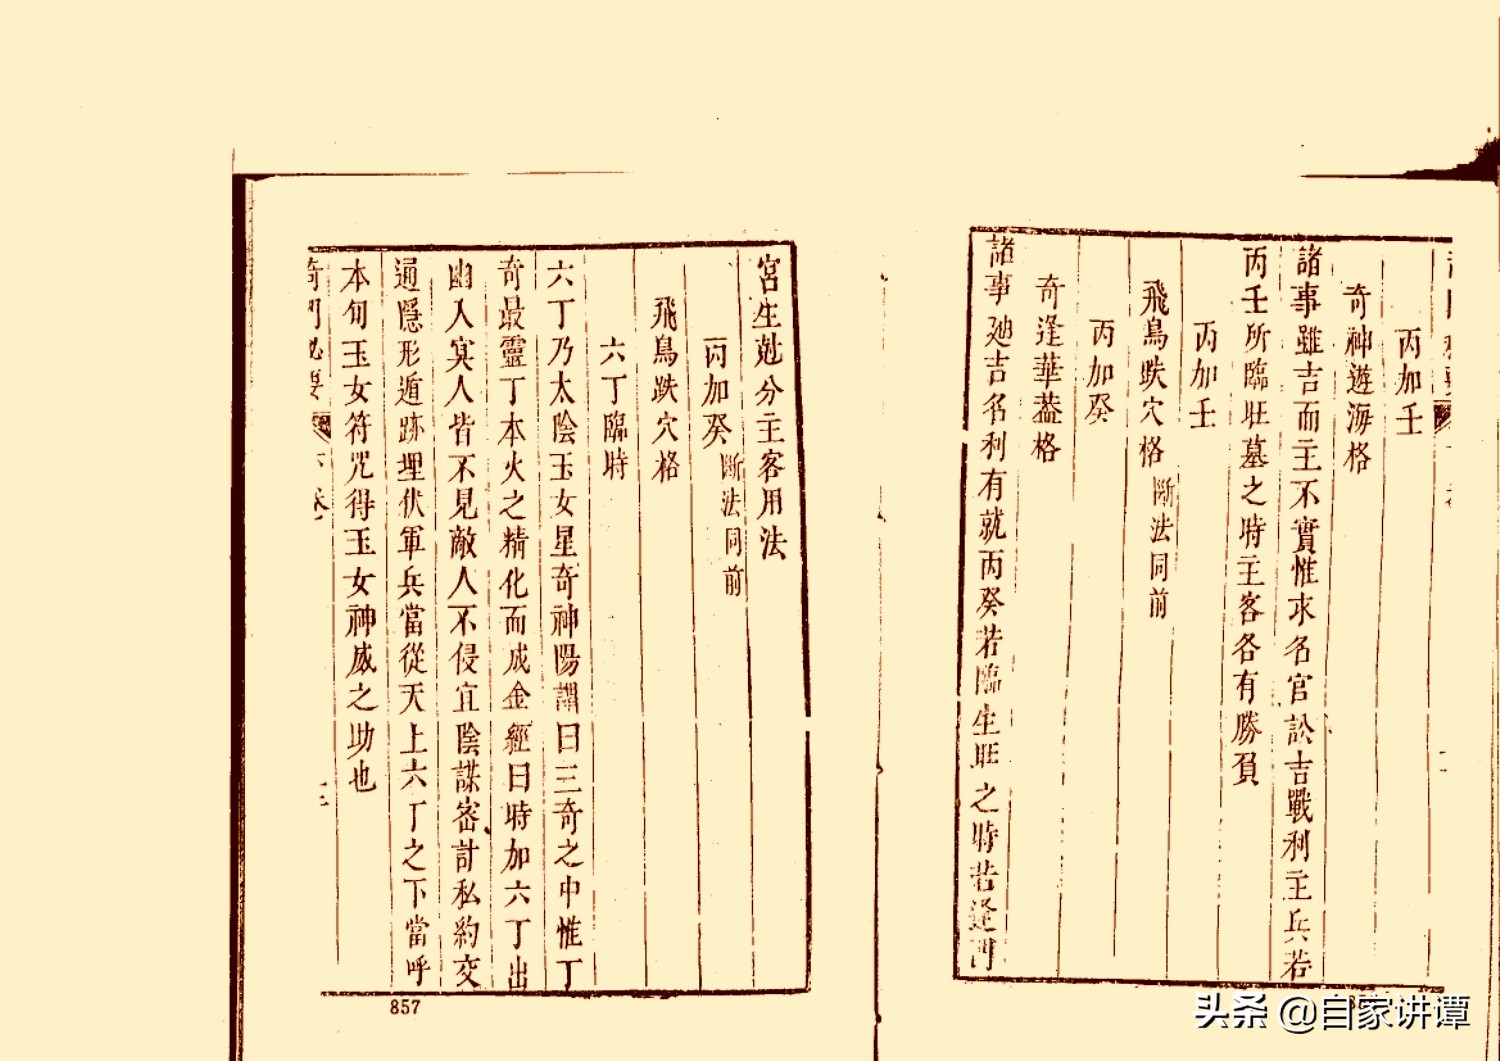 丙加壬
奇神遊海格
諸事雖吉而主不實惟求名官訟吉戰利主兵若
丙壬所臨旺墓之時主客各有勝負
丙加壬
飛鳥跌穴格 斷法同前
丙加癸
奇逢華蓋格
諸事廸吉名利有就丙癸若臨生旺之時若逢
宮生尅分主客用法
丙加癸 斷法同前
飛鳥跌穴格
六丁臨時
六丁乃太陰玉女星奇神陽謂曰三奇之中惟丁
奇最靈丁本火之精化而成金經曰時加六丁出
幽入冥人皆不見敵人不侵宜陰謀密計私約交
通隱形遁跡埋伏軍兵當從天上六丁之下當呼
本旬玉女符咒得玉女神威之助也
奇門祕要
857
头条 @自家讲谭